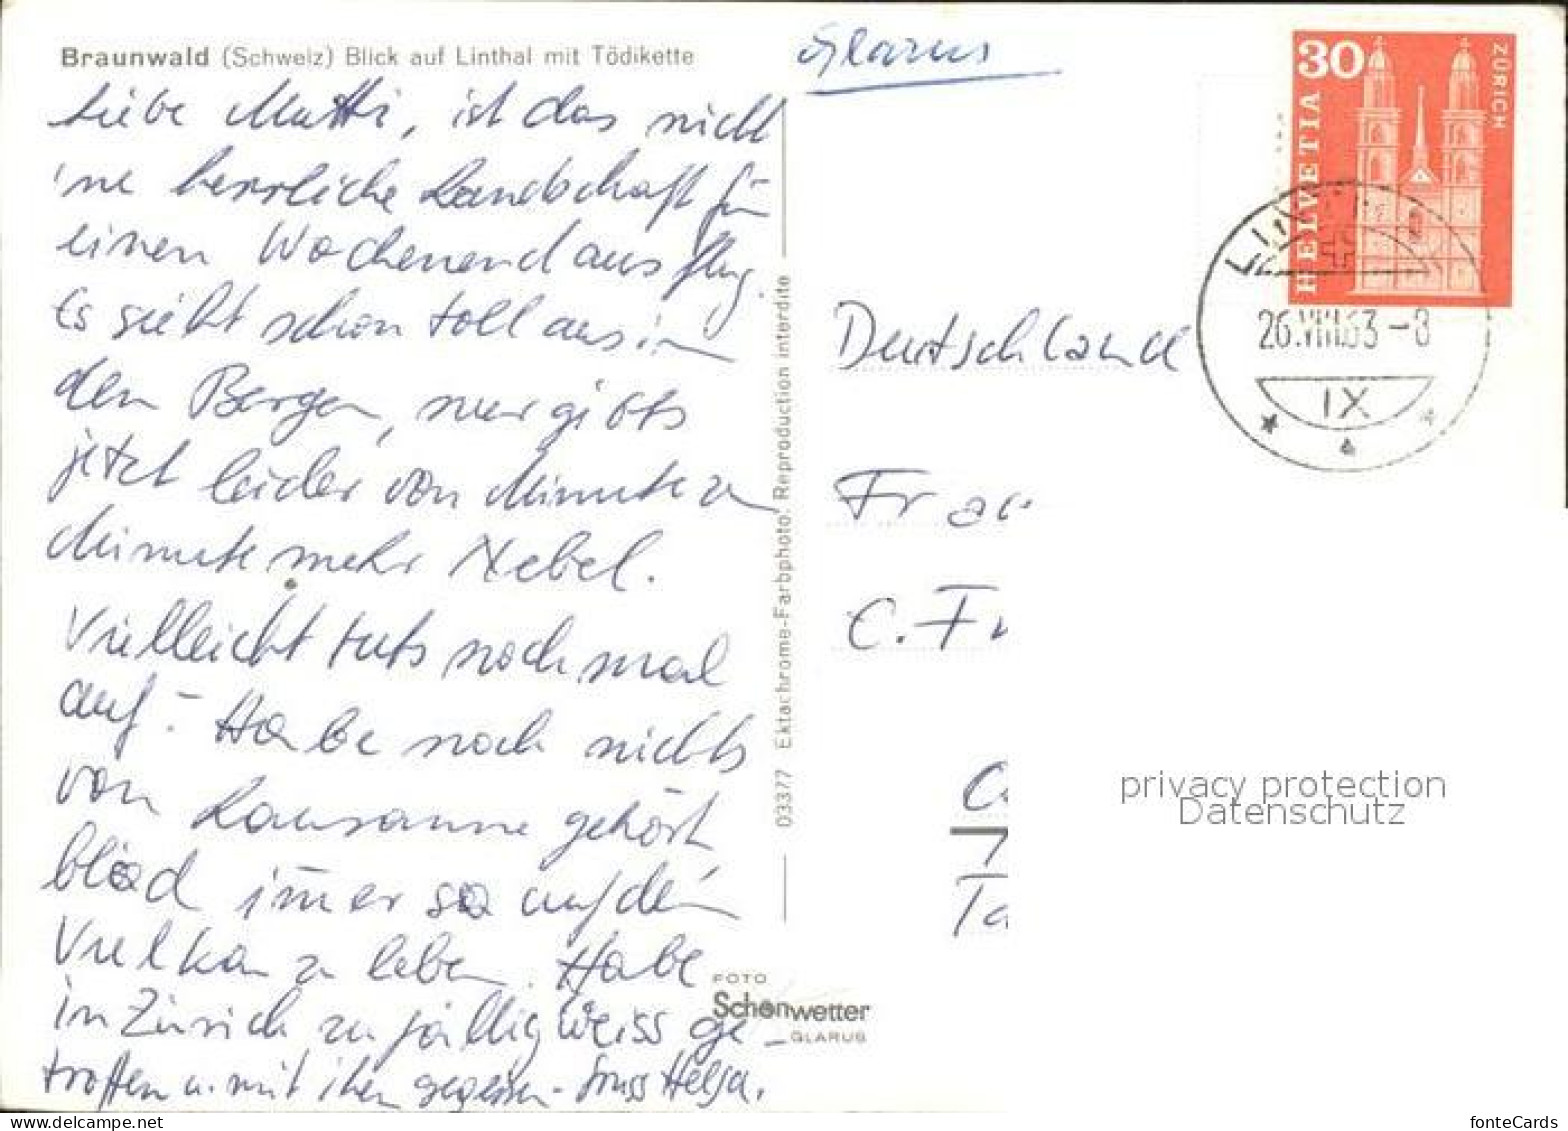 Braunwald (Schweiz) Blick auf Linthal mit Tödikette
Glarus
Liebe Mutti, ist das nicht
'ne herrliche Landschaft für
einen Wochenendausflug.
Es sieht schon toll aus in
den Bergen, nur gibts
jetzt leider von Minute zu
Minute mehr Nebel.
Vielleicht tuts noch mal
auf. - Habe noch nichts
von Lausanne gehört
blöd immer so auf dem
Vulkan zu leben. Habe
in Zürich zufällig Weiss ge-
troffen u. mit ihm gegessen - Gruss Helga.
03377 Ektachrome-Farbphoto. Reproduction interdite
FOTO
Schönwetter
GLARUS
30
HELVETIA
ZÜRICH
26.VIII.63-8
IX
Deutschland
Frau
C. Fr
7
Ta
privacy protection
Datenschutz
fonteCards